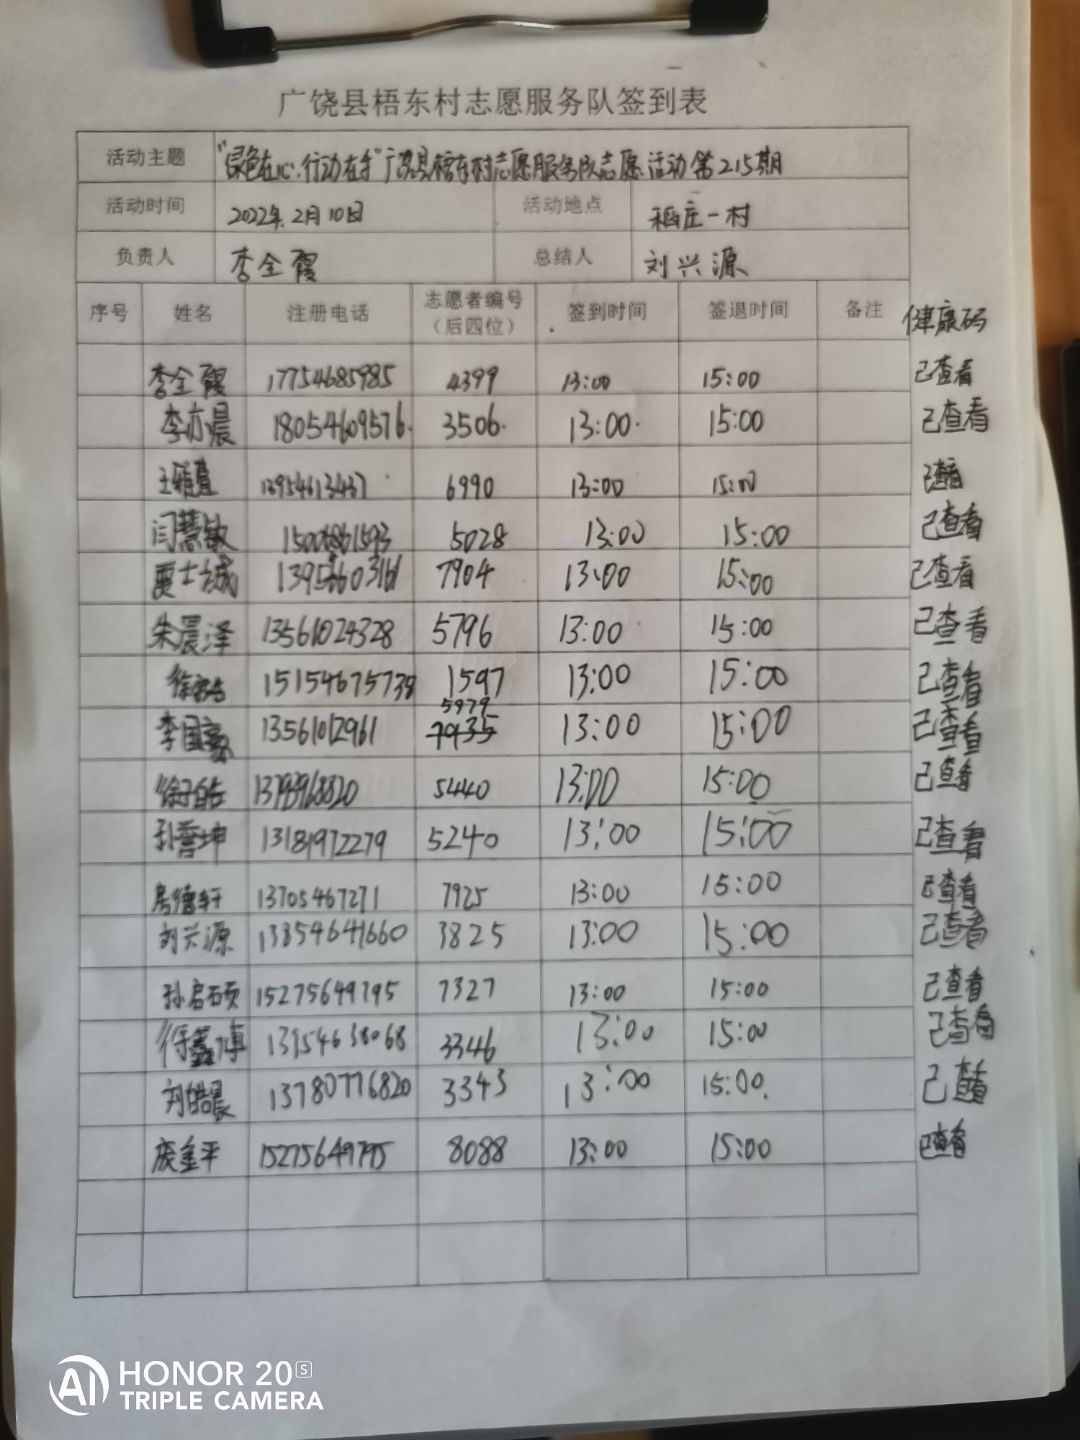 广饶县梧东村志愿服务队签到表
活动主题 "绿色在心·行动在手"广饶县梧东村志愿服务队志愿活动第215期
活动时间 2022年2月10日 活动地点 稻庄一村
负责人 李全霞 总结人 刘兴源
序号 姓名 注册电话 志愿者编号（后四位） 签到时间 签退时间 备注 健康码
李全霞 17754685985 4399 13:00 15:00 已查看
李亦晨 18054609576 3506 13:00 15:00 已查看
6990 13:00 15:00 已查看
闫慧敏 5028 13:00 15:00 已查看
7904 13:00 15:00 已查看
朱晨泽 13561024328 5796 13:00 15:00 已查看
15154675738 1597 13:00 15:00 已查看
李国豪 13561012961 5979 13:00 15:00 已查看
徐子皓 5440 13:00 15:00 已查看
孙誉坤 13181972279 5240 13:00 15:00 已查看
房德轩 13705467271 7925 13:00 15:00 已查看
刘兴源 13854641660 3825 13:00 15:00 已查看
孙启硕 15275649795 7327 13:00 15:00 已查看
徐鑫博 3346 13:00 15:00 已查看
刘皓晨 13780776820 3343 13:00 15:00 已查看
庞金平 15275649795 8088 13:00 15:00 已查看
HONOR 20S
TRIPLE CAMERA